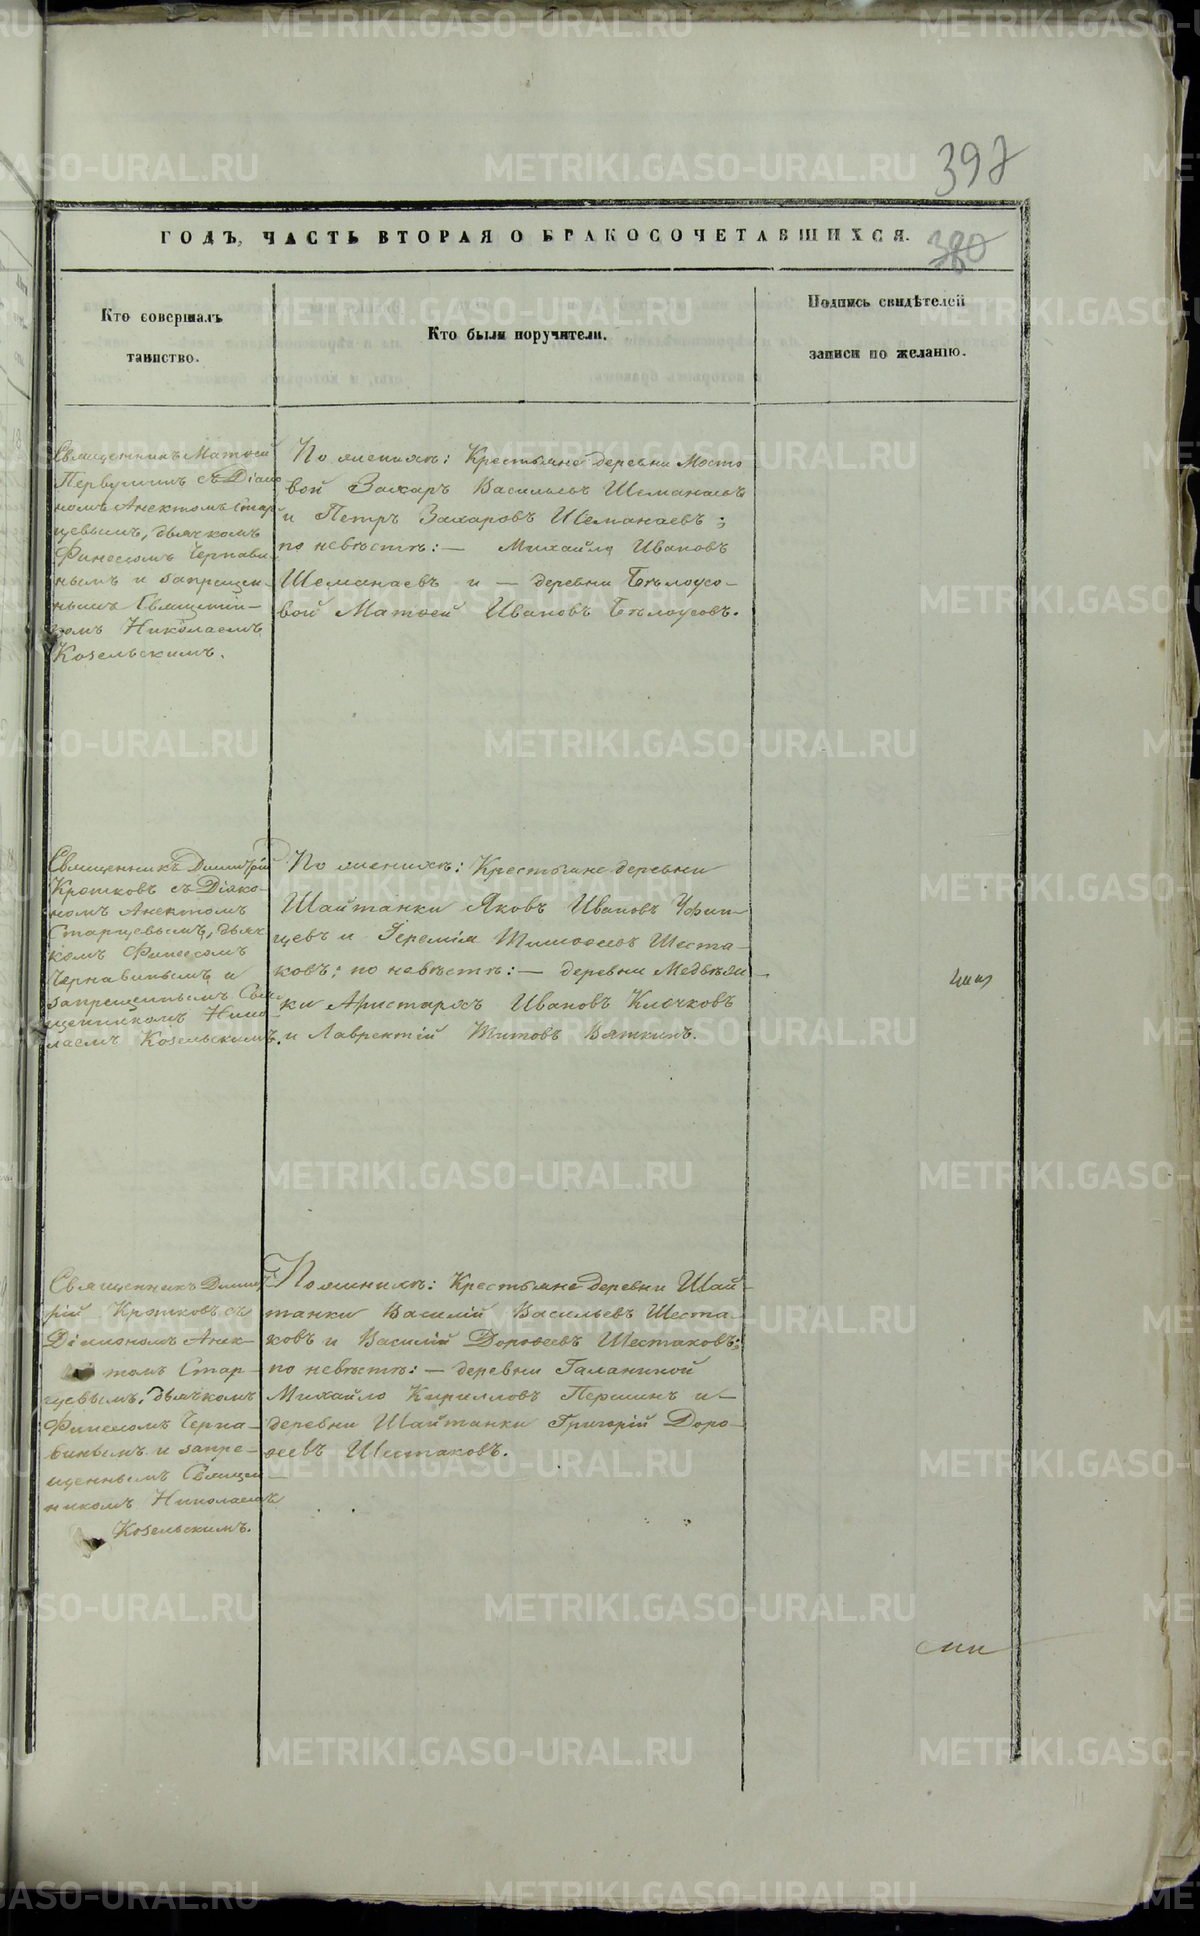 397
ГОДЪ, ЧАСТЬ ВТОРАЯ О БРАКОСОЧЕТАВШИХСЯ.
380
Кто совершалъ
таинство.
Кто были поручители.
Подпись свидѣтелей
записи по желанію.
Священникъ Матѳей
Первушинъ съ Діако
номъ Анектомъ Стар
цевымъ, дьячкомъ
Финеесомъ Чернави-
нымъ и запрещен-
нымъ Священни-
комъ Николаемъ
Козельскимъ.
По женихѣ: Крестьяне деревни Мосто
вой Захаръ Васильевъ Шеманаевъ
и Петръ Захаровъ Шеманаевъ;
по невѣстѣ: — Михайло Ивановъ
Шеманаевъ и — деревни Бѣлоусо-
вой Матѳей Ивановъ Бѣлоусовъ.
Священникъ Димитрій
Кротковъ съ Діяко-
номъ Анектомъ
Старцевымъ, дьяч
комъ Финеесомъ
Чернавинымъ и
запрещеннымъ Свя-
щенникомъ Нико
лаемъ Козельскимъ.
По женихѣ: Крестьяне деревни
Шайтанки Яковъ Ивановъ Уфин-
цевъ и Іеремія Тимоѳеевъ Шеста-
ковъ; по невѣстѣ: — деревни Медвѣж
ки Аристархъ Ивановъ Клочковъ
и Лаврентій Титовъ Вяткинъ.
Священникъ Димит
рій Кротковъ съ
Діякономъ Анек-
томъ Стар-
цевымъ, дьячкомъ
Финеесомъ Черна-
винымъ и запре-
щеннымъ Священ-
никомъ Николаемъ
Козельскимъ.
По женихѣ: Крестьяне деревни Шай-
танки Василій Васильевъ Шеста-
ковъ и Василій Дороѳеевъ Шестаковъ;
по невѣстѣ: — деревни Галаниной
Михайло Кирилловъ Першинъ и —
деревни Шайтанки Григорій Доро-
ѳеевъ Шестаковъ.
METRIKI.GASO-URAL.RU